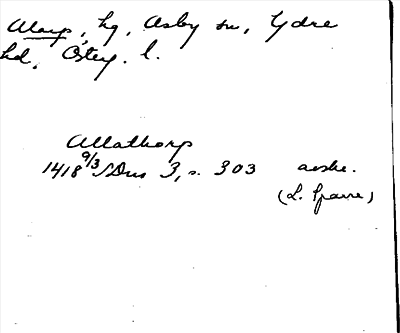 Alarp, hg, Asby sn, Ydre
hd, Östg. l.
Allathorp
1418 9/3 SDns 3, s. 303 avskr.
(L. Sparre)